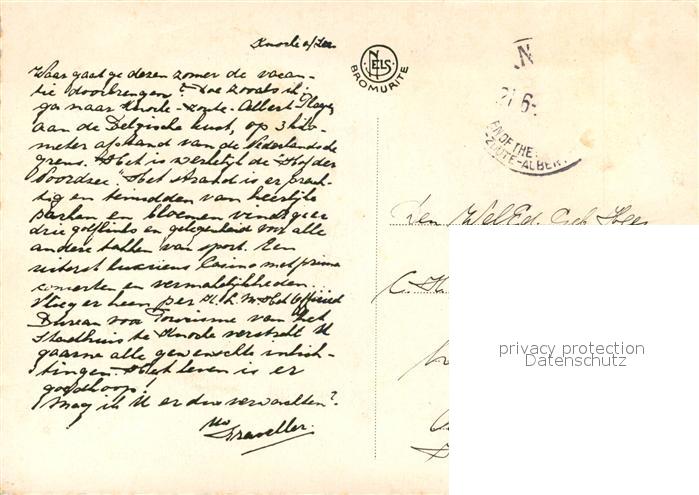 Knocke a/Zee
Waar gaat ge dezen zomer de vacan-
tie doorbrengen? Doe zooals ik:
ga naar Knocke-Zoute-Albert Plage,
aan de Belgische kust, op 3 kilo-
meter afstand van de Nederlandsche
grens. Het is werkelijk de "Hof der
Noordzee". Het strand is er prach-
tig en temidden van heerlijke
parken en bloemen vindt ge er
drie golflinks en gelegenheid voor alle
andere takken van sport. Een
uiterst luxueus Casino met prima
concerten en vermakelijkheden...
Vlieg er heen per K.L.M. Het Officieel
Bureau voor Toerisme van het
Stadhuis te Knocke verstrekt U
gaarne alle gewenschte inlich-
tingen. Het leven is er
goedkoop!
Mag ik U er dus verwachten?
Uw
Traveller.
NELS
BROMURITE
N
21 6-
OF THE
-ZOUTE-ALBER
Den WelEd. Geb. Heer
privacy protection
Datenschutz